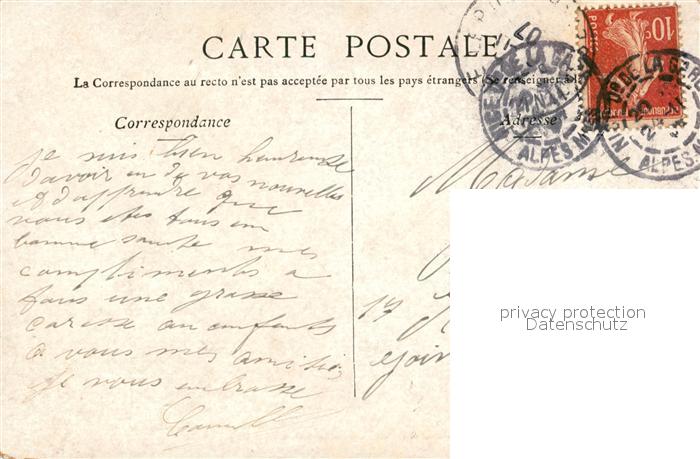 CARTE POSTALE
La Correspondance au recto n'est pas acceptée par tous les pays étrangers (Se renseigner à la
Correspondance
Adresse
10c
POSTES
ALPES M
ALPES M
Je suis bien heureuse
d'avoir eu de vos nouvelles
et d'apprendre que
vous etes tous en
bonne sante mes
compliments a
tous une grosse
caresse au enfants
a vous mes amities
Je vous embrasse
Madame
17
privacy protection
Datenschutz